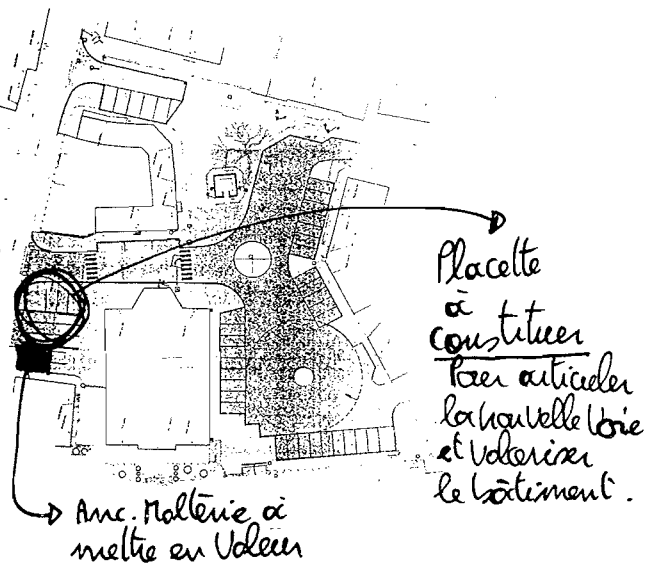 Placette
à
constituer
Pour articuler
la nouvelle Voie
et Valoriser
le bâtiment.
Anc. Malterie à
mettre en Valeur